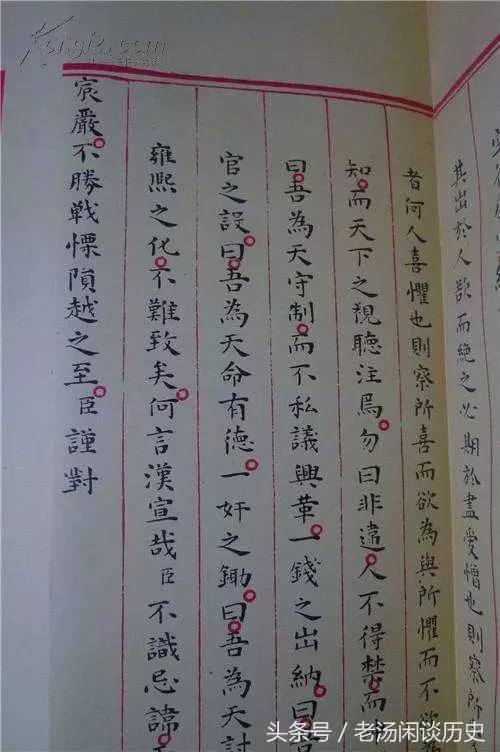 其出於人欲而絶之必期於盡愛憎也則察所
者何人喜懼也則察所喜而欲為與所懼而不欲
知而天下之視聽注焉勿曰非違人不得禁而
曰吾為天守制而不私議興革一錢之出納曰
官之設曰吾為天命有德一奸之鋤曰吾為天討
雍熙之化不難致矣何言漢宣哉臣不識忌諱
宸嚴不勝戰慄隕越之至臣謹對
头条号 / 老汤闲谈历史